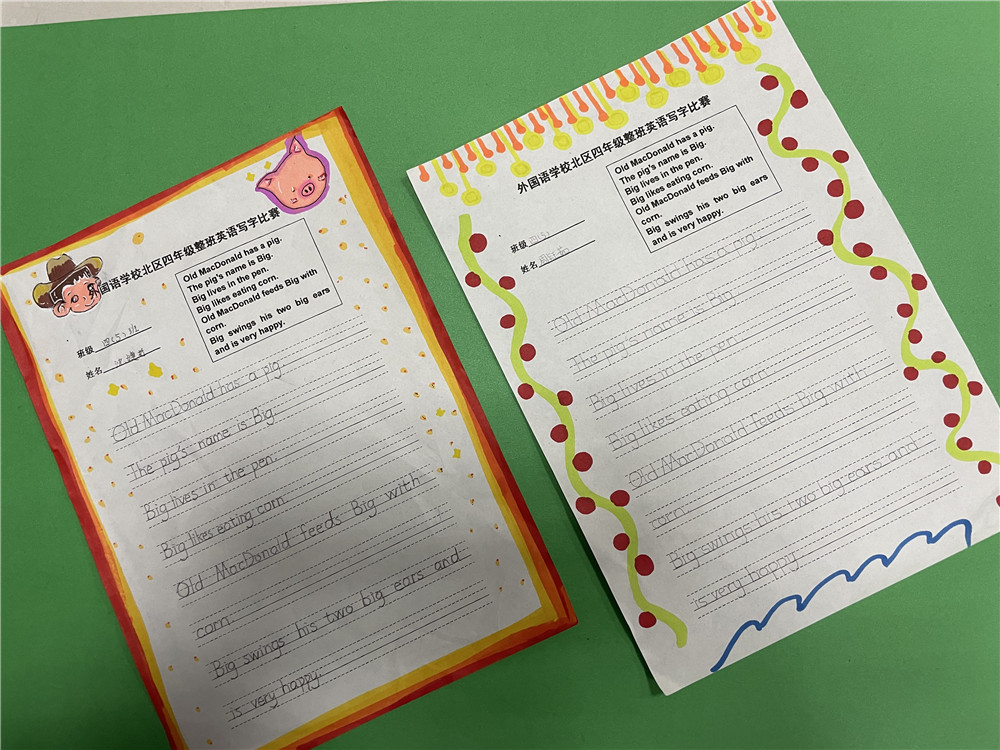 国语学校北区四年级整班英语写字比赛
Old MacDonald has a pig.
The pig's name is Big.
Big lives in the pen.
Big likes eating corn.
Old MacDonald feeds Big with
corn.
Big swings his two big ears
and is very happy.
班级
姓名
Old MacDonald has a pig.
The pig's name is Big.
Big lives in the pen.
Big likes eating corn.
Old MacDonald feeds Big with
corn.
Big swings his two big ears and
is very happy.
外国语学校北区四年级整班英语写字比赛
Old MacDonald has a pig.
The pig's name is Big.
Big lives in the pen.
Big likes eating corn.
Old MacDonald feeds Big with
corn.
Big swings his two big ears
and is very happy.
班级
姓名
Old MacDonald has a pig.
The pig's name is Big.
Big lives in the pen.
Big likes eating corn.
Old MacDonald feeds Big with
corn.
Big swings his two big ears and
is very happy.